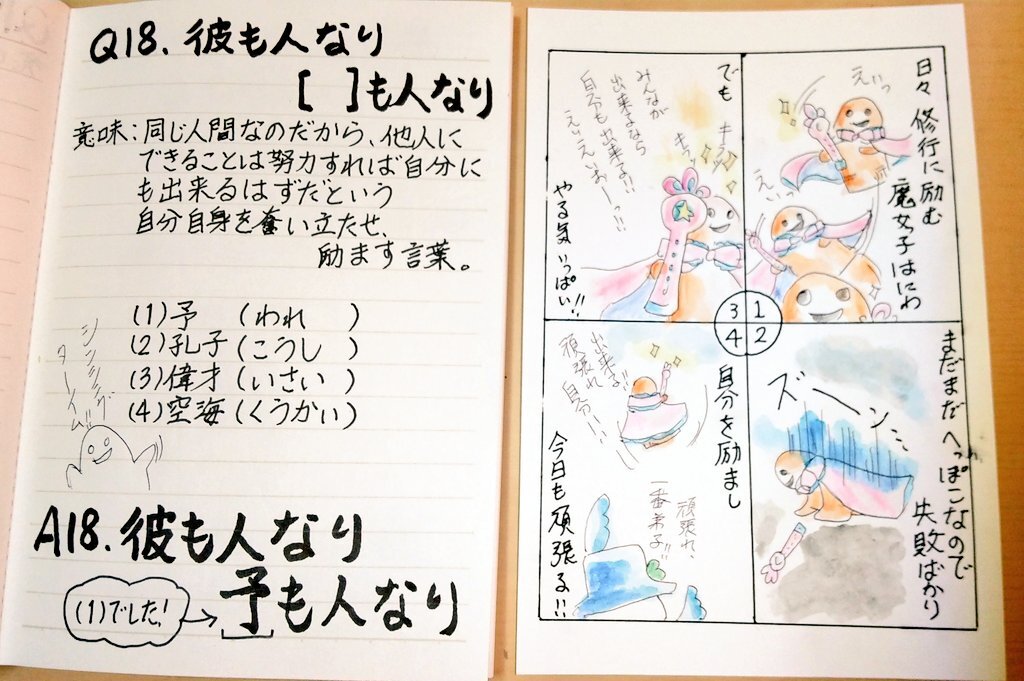 Q18. 彼も人なり
[ ]も人なり
意味:同じ人間なのだから、他人に
できることは努力すれば自分に
も出来るはずだという
自分自身を奮い立たせ、
励ます言葉。
(1)予 (われ )
(2)孔子 (こうし )
(3)偉才 (いさい )
(4)空海 (くうかい)
シンキング
タイム
A18. 彼も人なり
予も人なり
(1)でした!
日々 修行に励む
魔女子はにわ
えいっ
えいっ
1
まだまだ へっぽこなので
失敗ばかり
ズーン…
2
でも
キラッ
キラッ
みんなが
出来るなら
自分も出来る!!
えいえいおーっ!!
やる気 いっぱい!!
3
自分を励まし
出来る!!
頑張れ
自分!!
頑張れ、
一番弟子!!
今日も頑張る!!
4